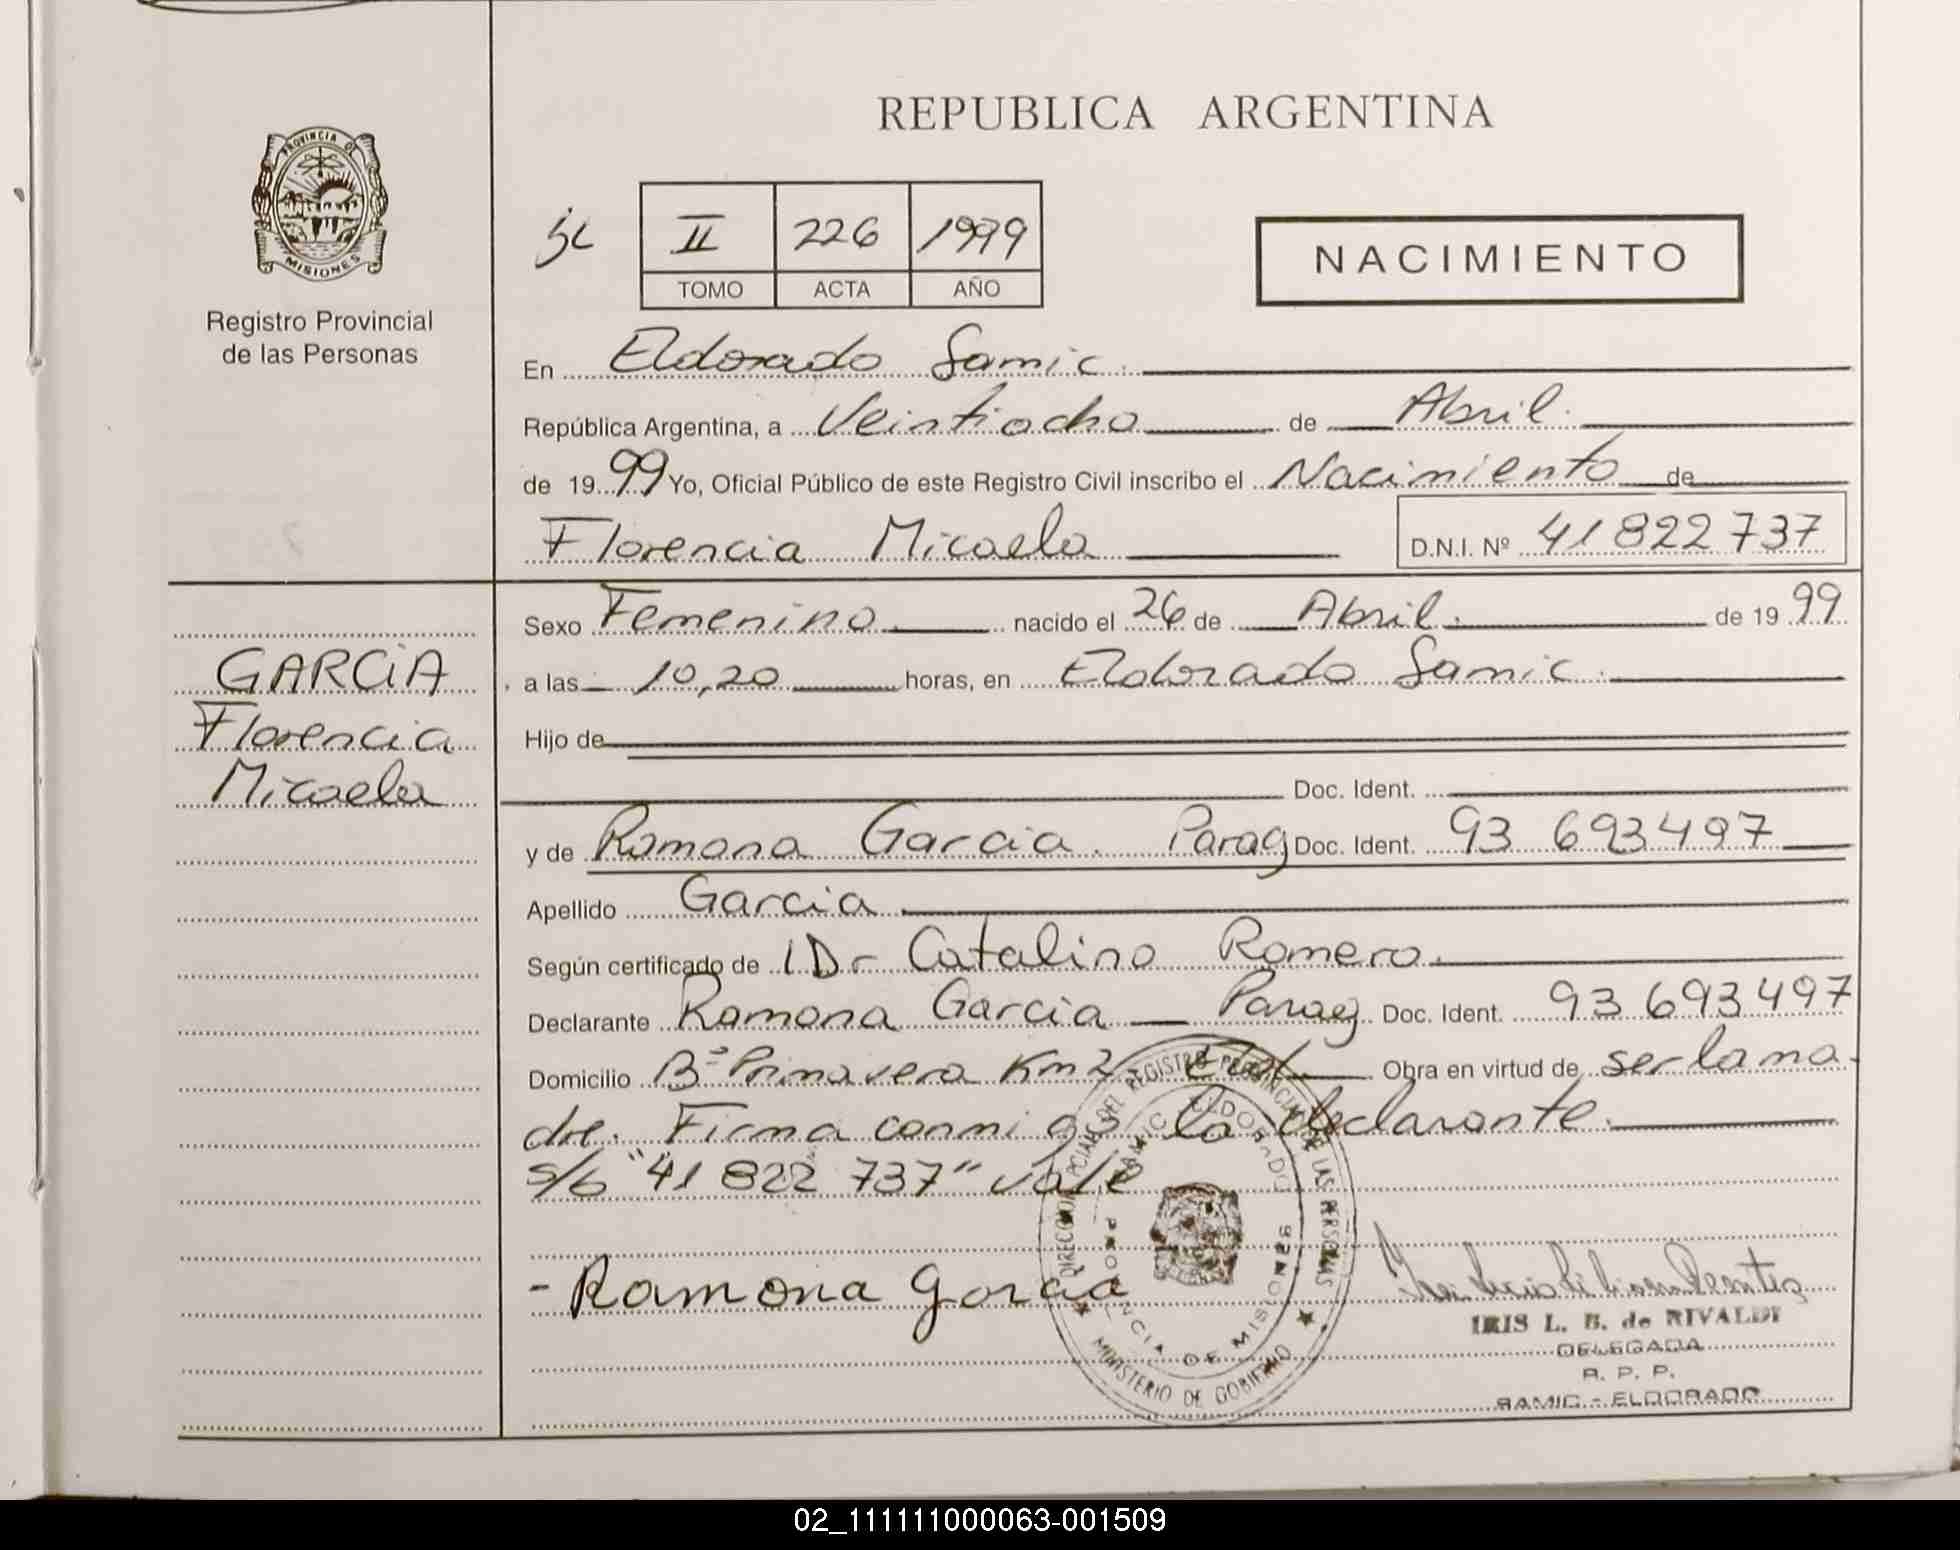 REPUBLICA ARGENTINA
PROVINCIA DE
MISIONES
Registro Provincial
de las Personas
II 226 1999
TOMO ACTA AÑO
NACIMIENTO
En Eldorado Samic.
República Argentina, a Veintiocho de Abril.
de 1999 Yo, Oficial Público de este Registro Civil inscribo el Nacimiento de
Florencia Micaela D.N.I. Nº 41 822 737
GARCIA
Florencia
Micaela
Sexo Femenino. nacido el 26 de Abril. de 1999
a las 10,20 horas, en Eldorado Samic.
Hijo de
Doc. Ident.
y de Ramona Garcia. Parag Doc. Ident. 93 693497
Apellido Garcia
Según certificado de Dr Catalino Romero.
Declarante Ramona Garcia Parag. Doc. Ident. 93 693497
Domicilio Bº Primavera Km 2 Eld. Obra en virtud de ser la ma-
dre. Firma conmigo la declarante.
s/b "41 822 737" vale
- Ramona Garcia
DIRECCION DEL REGISTRO PROVINCIAL DE LAS PERSONAS
MINISTERIO DE GOBIERNO
SAMIC ELDORADO
PROVINCIA DE MISIONES
IRIS L. B. de RIVALDI
DELEGADA
R. P. P.
SAMIC - ELDORADO
02_111111000063-001509